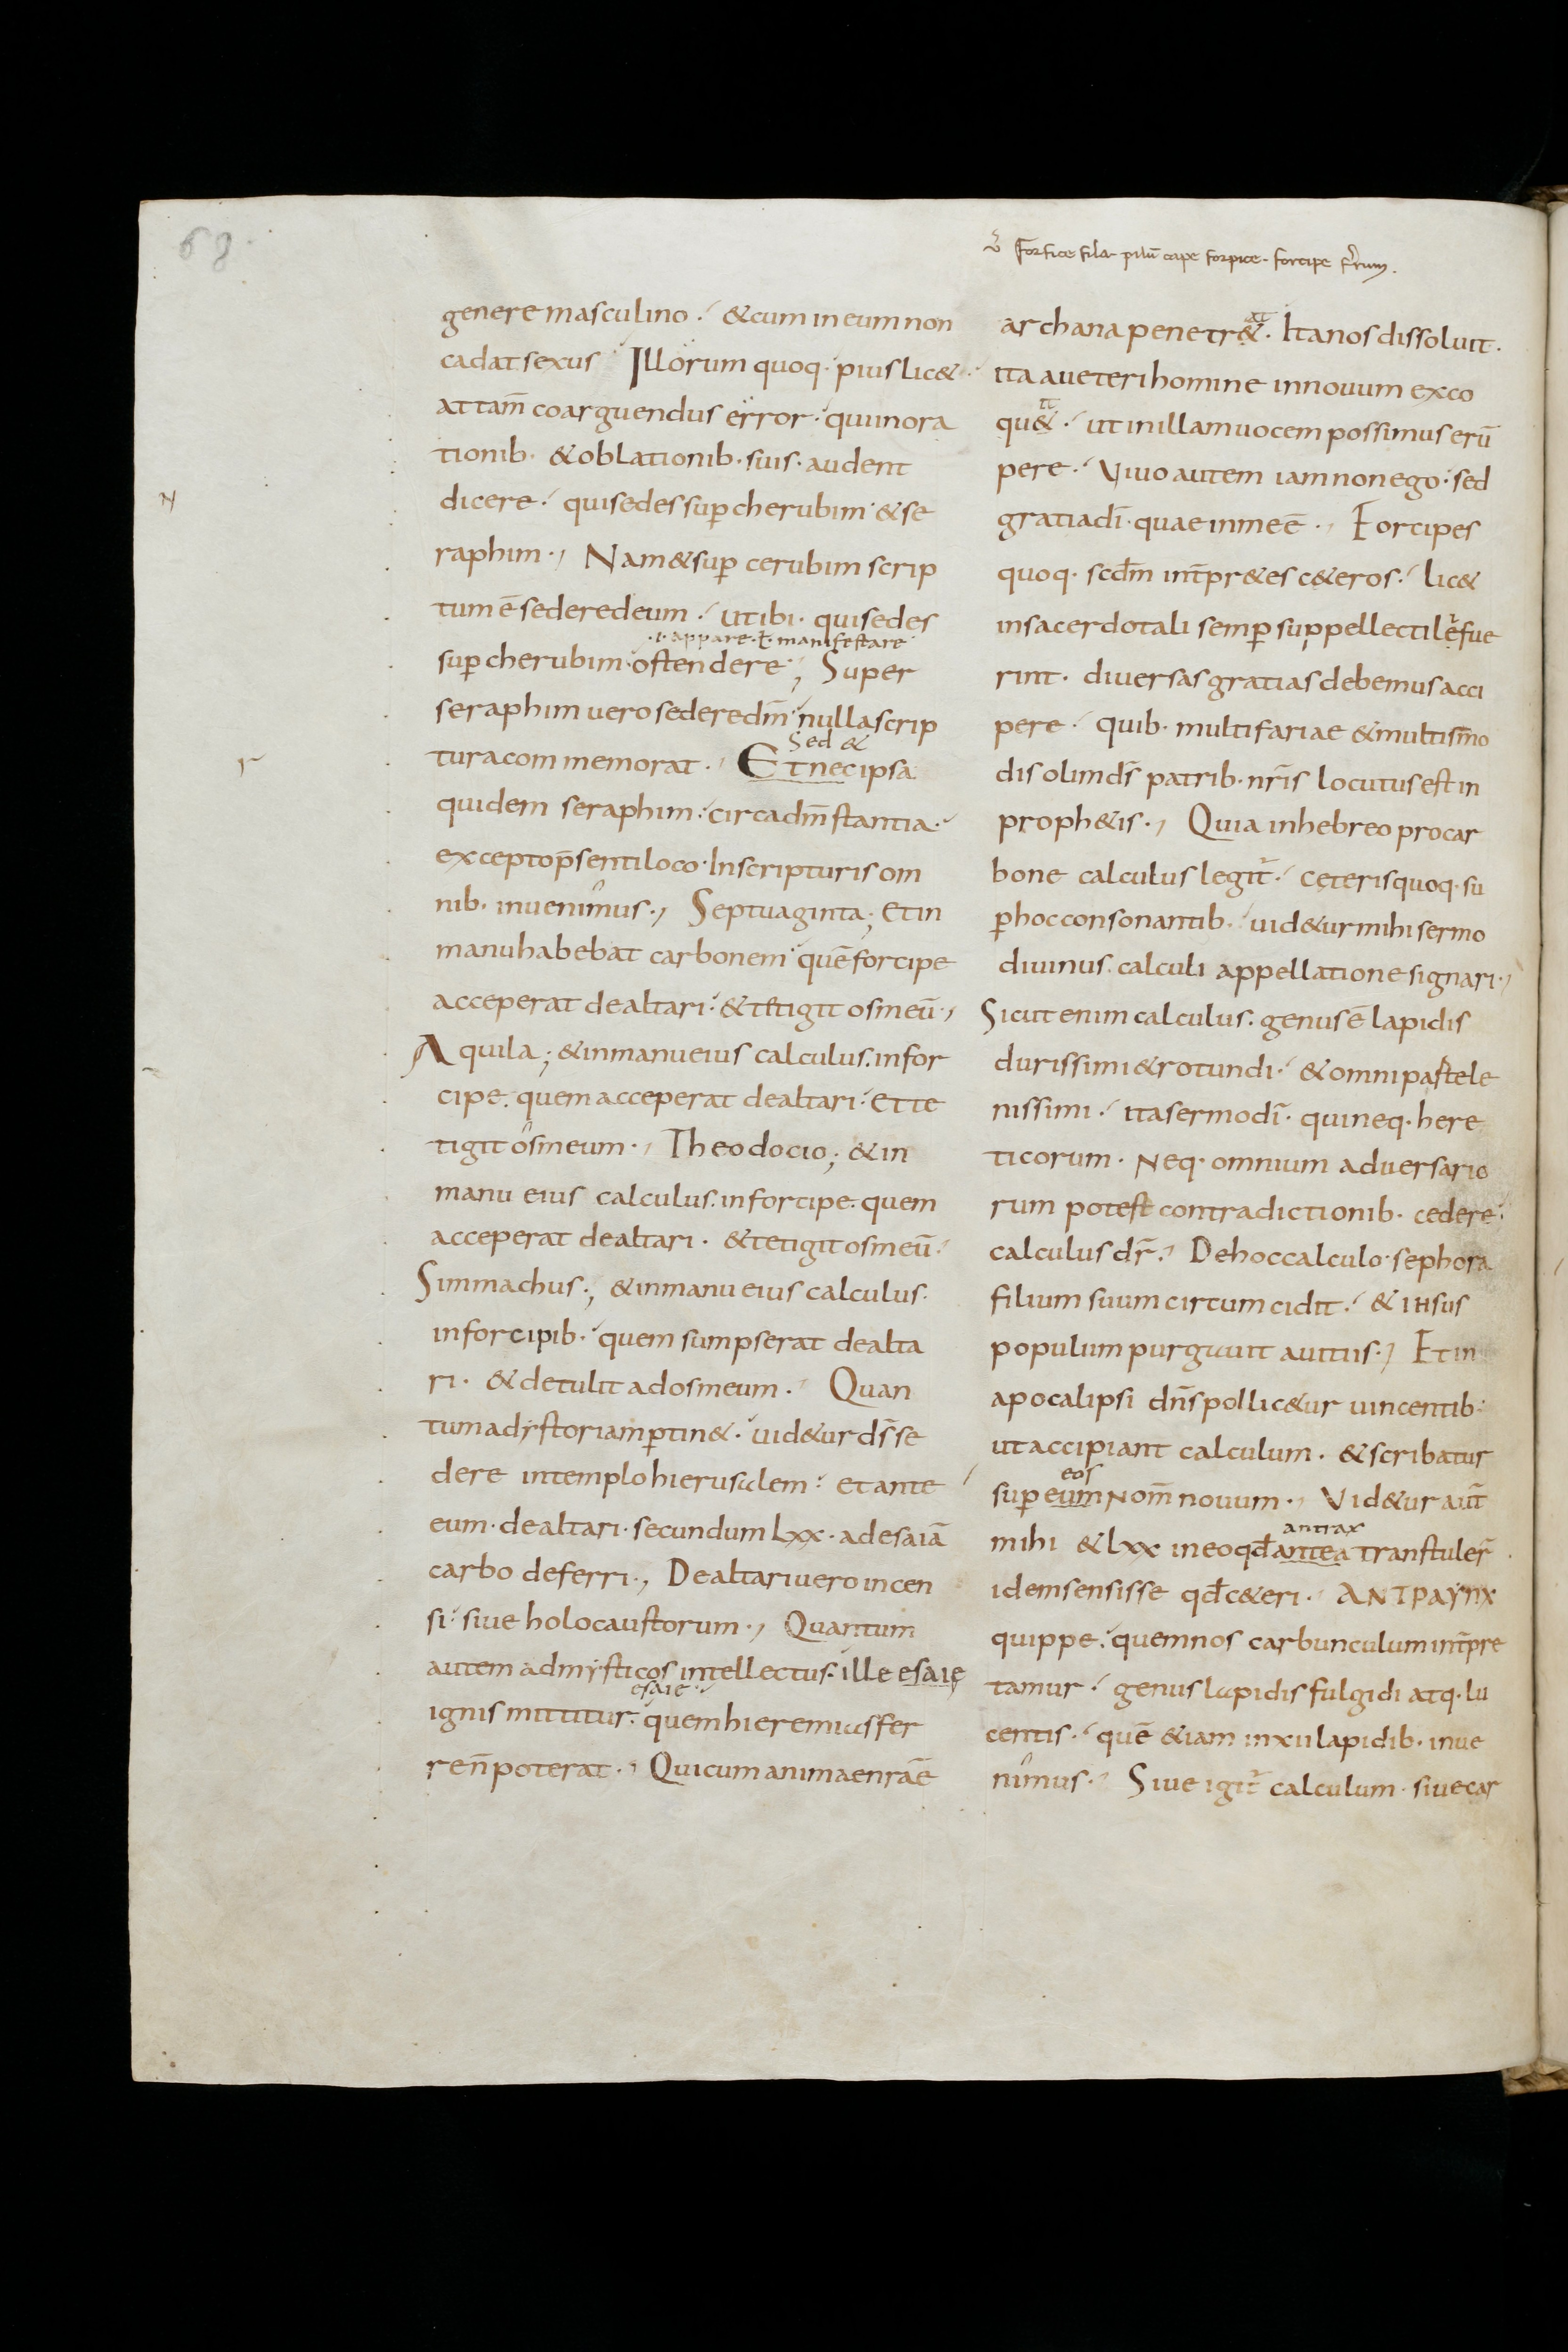 68
ṽ Forfice fila pilū cape forpice. forcipe fr̄rum.
genere masculino. &cum in eum non
cadat sexus Illorum quoq. pius lic&
attam̄ coarguendus error. quiinora
tionib. &oblationib. suis. audent
dicere. quisedes sup cherubim &se
raphim. Nam&sup cerubim scrip
tum ē sederedeum. utibi. quisedes
.i. appare. ł manifestare
sup cherubim. ostendere; Super
seraphim uero sederedm̄ nulla scrip
Sed &
tura commemorat. Et nec ipsa
quidem seraphim. circadm̄ stantia.
excepto p̄sentiloco. Inscripturis om
nib. inuenimus. Septuaginta; Etin
manuhabebat carbonem quē forcipe
acceperat de altari. &tetigit osmeū.
Aquila; &inmanueius calculus. infor
cipe. quem acceperat dealtari. Ette
tigit osmeum. Theodocio; &in
manu eius calculus. inforcipe. quem
acceperat dealtari. &tetigit osmeū.
Simmachus; &inmanu eius calculus.
inforcipib. quem sumpserat dealta
ri. &detulit adosmeum. Quan
tum adystoriam ptin&. uid&ur ds̄ se
dere intemplohierusalem. et ante
eum. dealtari. secundum lxx. adesaiā
carbo deferri. Dealtariuero incen
si. siue holocaustorum. Quantum
autem admysticos intellectus. ille esaię
esaię
ignis mittitur. quem hieremias fer
re n̄ poterat. Quicumanimae nr̄ae
archana penetr&. Itanos dissoluit.
at
ita aueteri homine innouum exco
it
qu&. utinillam uocem possimus erū
pere. Viuo autem iam non ego. sed
gratia dī. quae inme ē. Forcipes
quoq. scdm̄ int̄pr&es c&eros. lic&
insacerdotali semp suppellectile fue
rint. diuersas gratias debemus acci
pere. quib. multifariae &multism̄o
dis olim ds̄ patrib. nr̄is locutus est in
proph&is. Quia inhebreo procar
bone calculus legit̄. ceterisquoq. su
p hoc consonantib. uid&ur mihi sermo
diuinus. calculi appellatione signari.
Sicut enim calculus. genus ē lapidis
durissimi &rotundi. &omni paste le
nissimi. ita sermo dī. quineq. here
ticorum. Neq. omnium aduersario
rum potest contradictionib. cedere.
calculus dr̄. Dehoc calculo. sephora
filium suum circumcidit. & iħsus
populum purgauit auitiis. Et in
apocalipsi dn̄s pollic&ur uincentib.
utaccipiant calculum. &scribatus
eos
sup eum Nom̄ nouum. Vid&ur aut̄
antrax
mihi &lxx ineoqđ antea transtuler̄
idemsensisse qđ c&eri. ANTPAYNX
quippe. quemnos carbunculum int̄pre
tamur. genus lapidis fulgidi atq. lu
centis. quē &iam inxii lapidib. inue
nimus. Siue igit̄ calculum. siue car